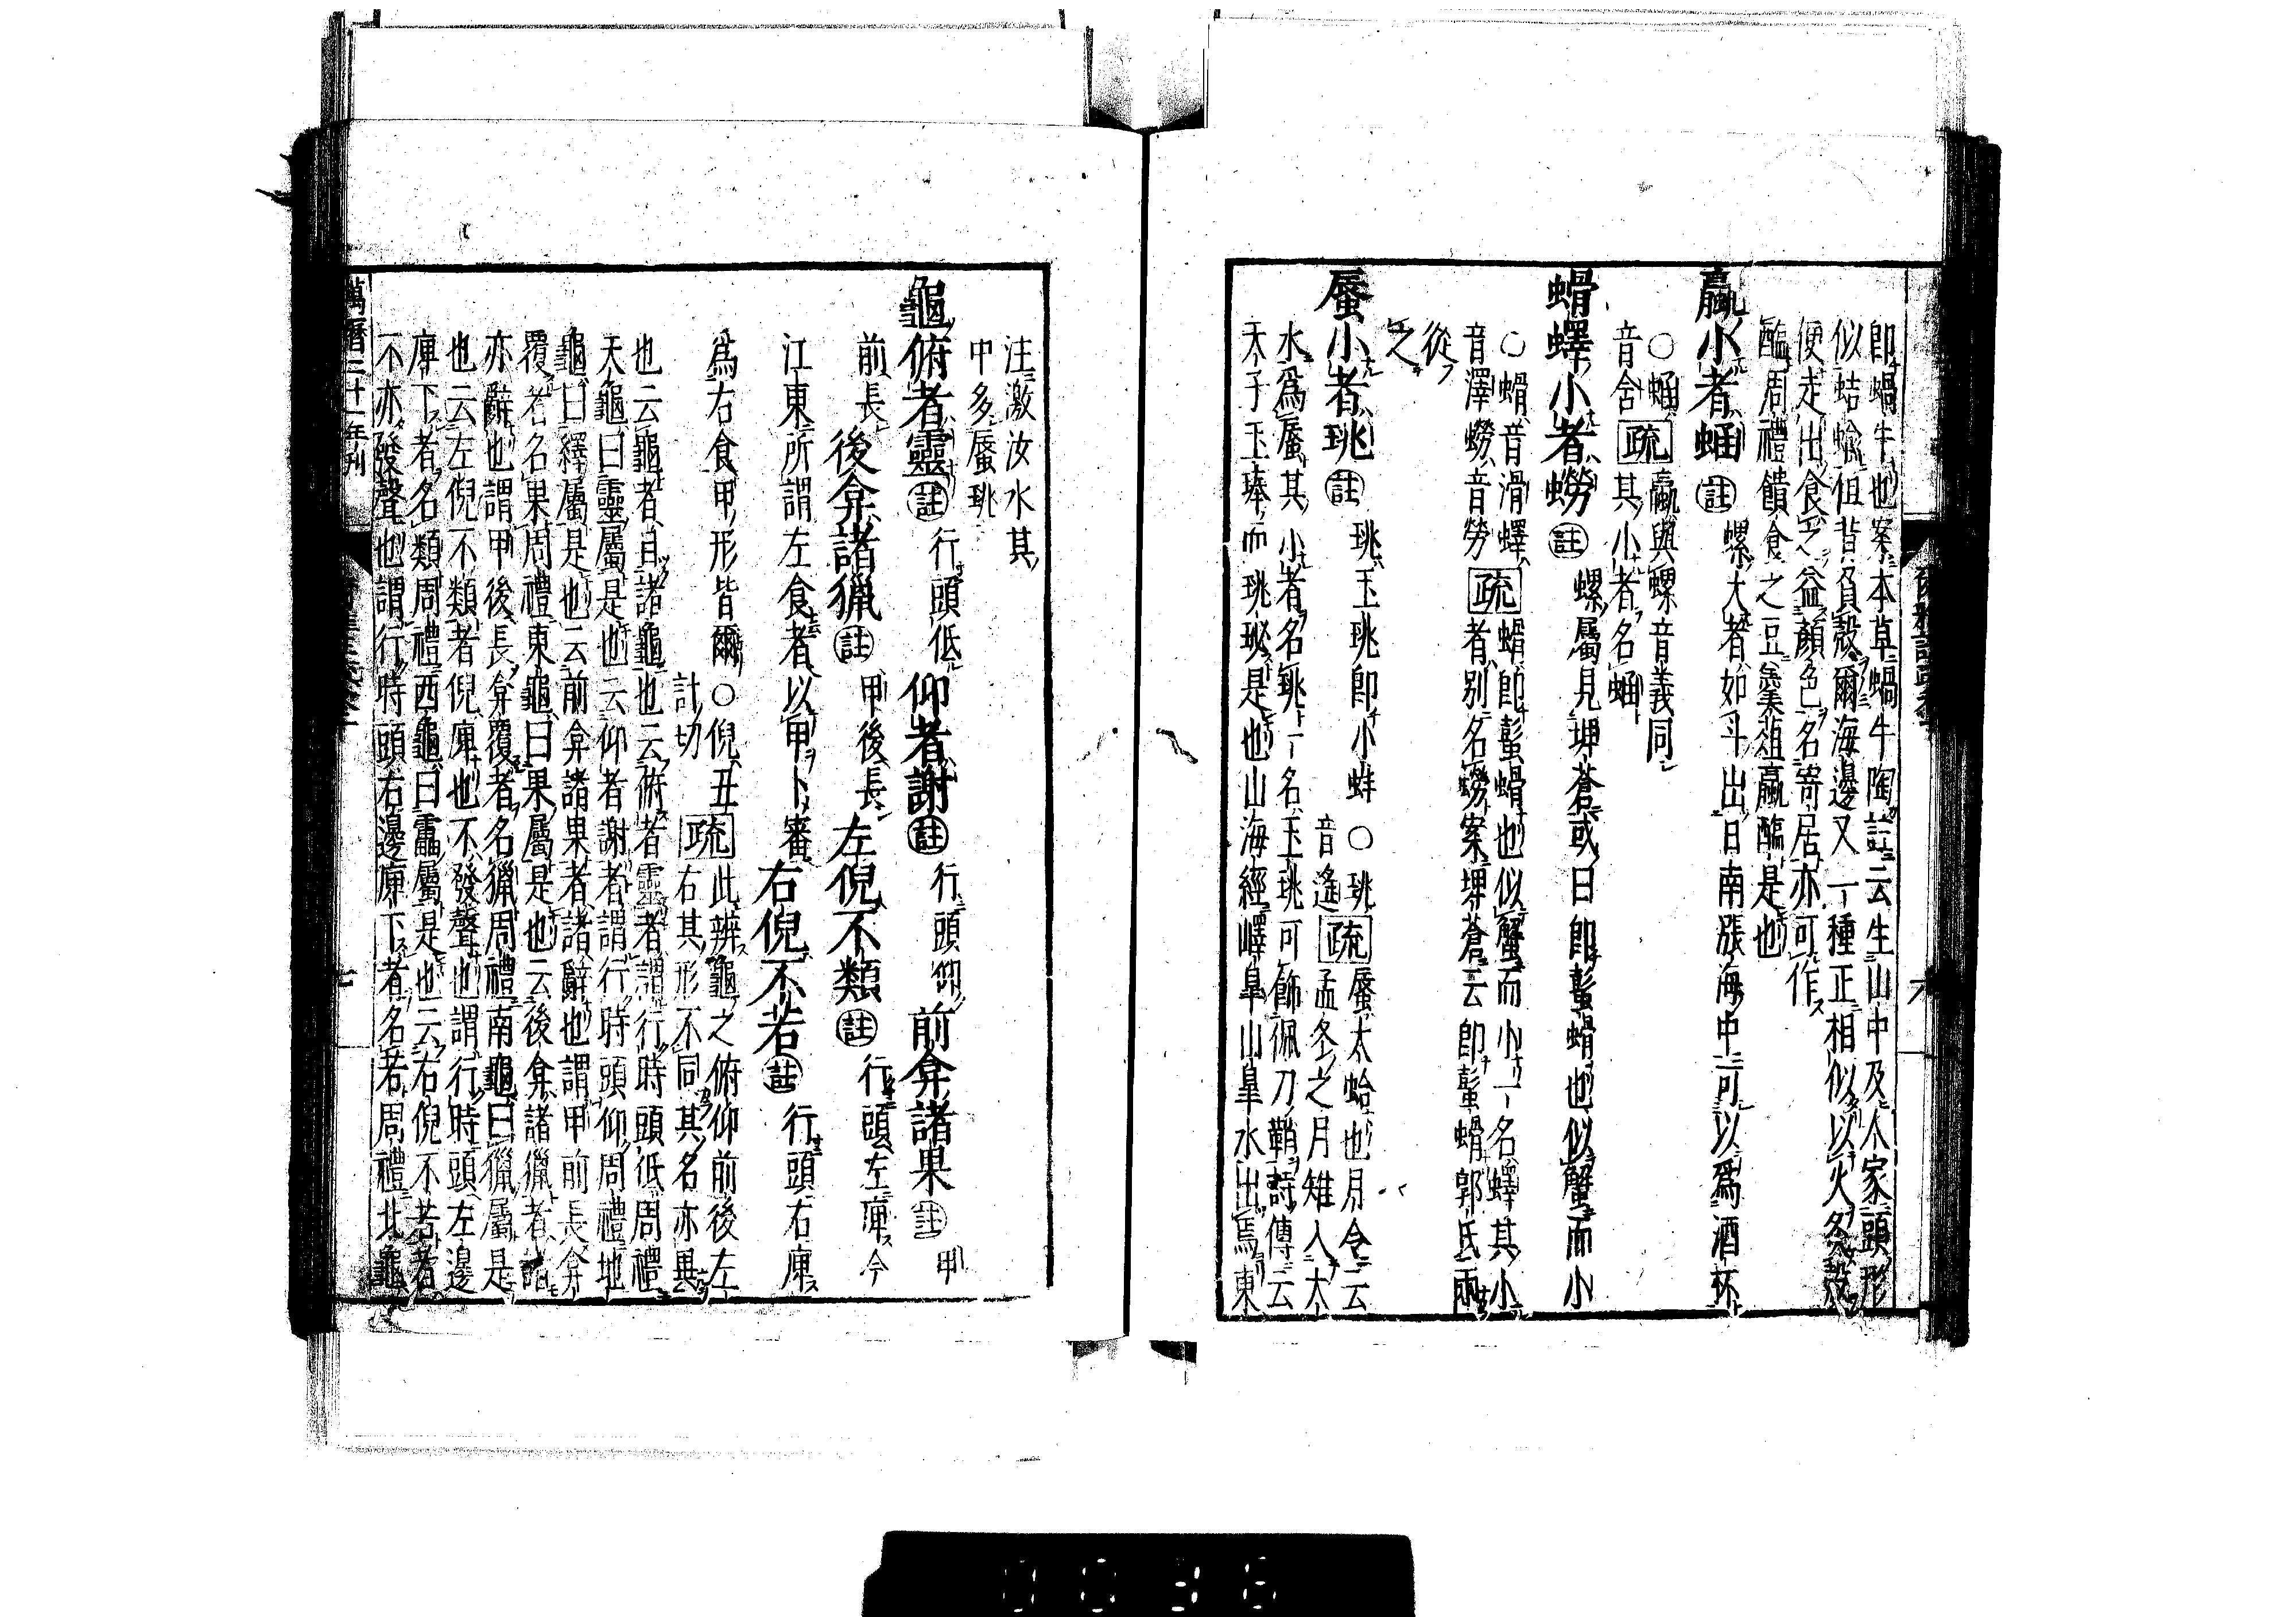 即蝸牛也案本草蝸牛陶註云生山中及人家頭形
似蛞蝓祖背負殼爾海邊又一種正相似以火炙殼
便走出食之益顏色名寄居亦可作
醢周禮饋食之豆葵菹蠃醢是也
蠃小者蜬 註 螺大者如斗出日南漲海中可以爲酒杯
○蜬音舍 疏 蠃與螺音義同其小者名蜬
蝟蠌小者蟧 註 螺屬見埤蒼或曰即蟚蝟也似蟹而小
○蝟音滑蠌音澤蟧音勞 疏 蝟即蟚蝟也似蟹而小一名蠌其小
者別名蟧案埤蒼云即蟚蝟郭氏兩
從
之
蜃小者珧 註 珧玉珧即小蚌 ○珧音遙 疏 蜃大蛤也月令云孟冬之月雉入大
水爲蜃其小者名珧一名玉珧可飾佩刀鞘詩傳云
天子玉琫而珧珌是也山海經嶧皐山皐水出焉東
注激汝水其
中多蜃珧
龜俯者靈 註 行頭低 仰者謝 註 行頭仰 前弇諸果 註 甲
前長 後弇諸獵 註 甲後長 左倪不類 註 行頭左庳今
江東所謂左食者以甲卜審 右倪不若 註 行頭右庳
爲右食甲形皆爾 ○倪五計切 疏 此辨龜之俯仰前後左右其形不同其名亦異
也云龜者目諸龜也云俯者靈者謂行時頭低周禮
天龜曰靈屬是也云仰者謝者謂行時頭仰周禮地
龜曰繹屬是也云前弇諸果者諸辭也謂甲前長弇
覆者名果周禮東龜曰果屬是也云後弇諸獵者諸
亦辭也謂甲後長弇覆者名獵周禮南龜曰獵屬是
也云左倪不類者倪庳也不發聲也謂行時頭左邊
庳下者名類周禮西龜曰靁屬是也云右倪不若者
不亦發聲也謂行時頭右邊庳下者名若周禮北龜
萬曆二十一年刊
0036